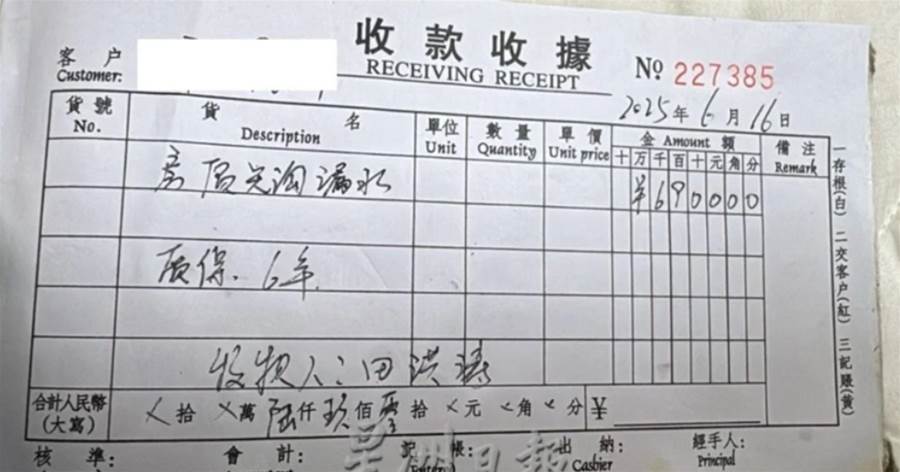 收款收據
RECEIVING RECEIPT
№ 227385
客戶
Customer:
2025年6月16日
貨號 貨名 單位 數量 單價 金 Amount 額 備注
No. Description Unit Quantity Unit price 十万千百十元角分 Remark
漏水 ¥690000
质保. 6年
收款人:田洪
合計人民幣(大寫) ㄨ拾ㄨ萬陆仟玖佰零拾ㄨ元ㄨ角ㄨ分 ¥
核準: 會計: 記帳: 出納: 經手人:
Cashier Principal
一存根(白) 二交客户(紅) 三記賬(黄)
星洲日報